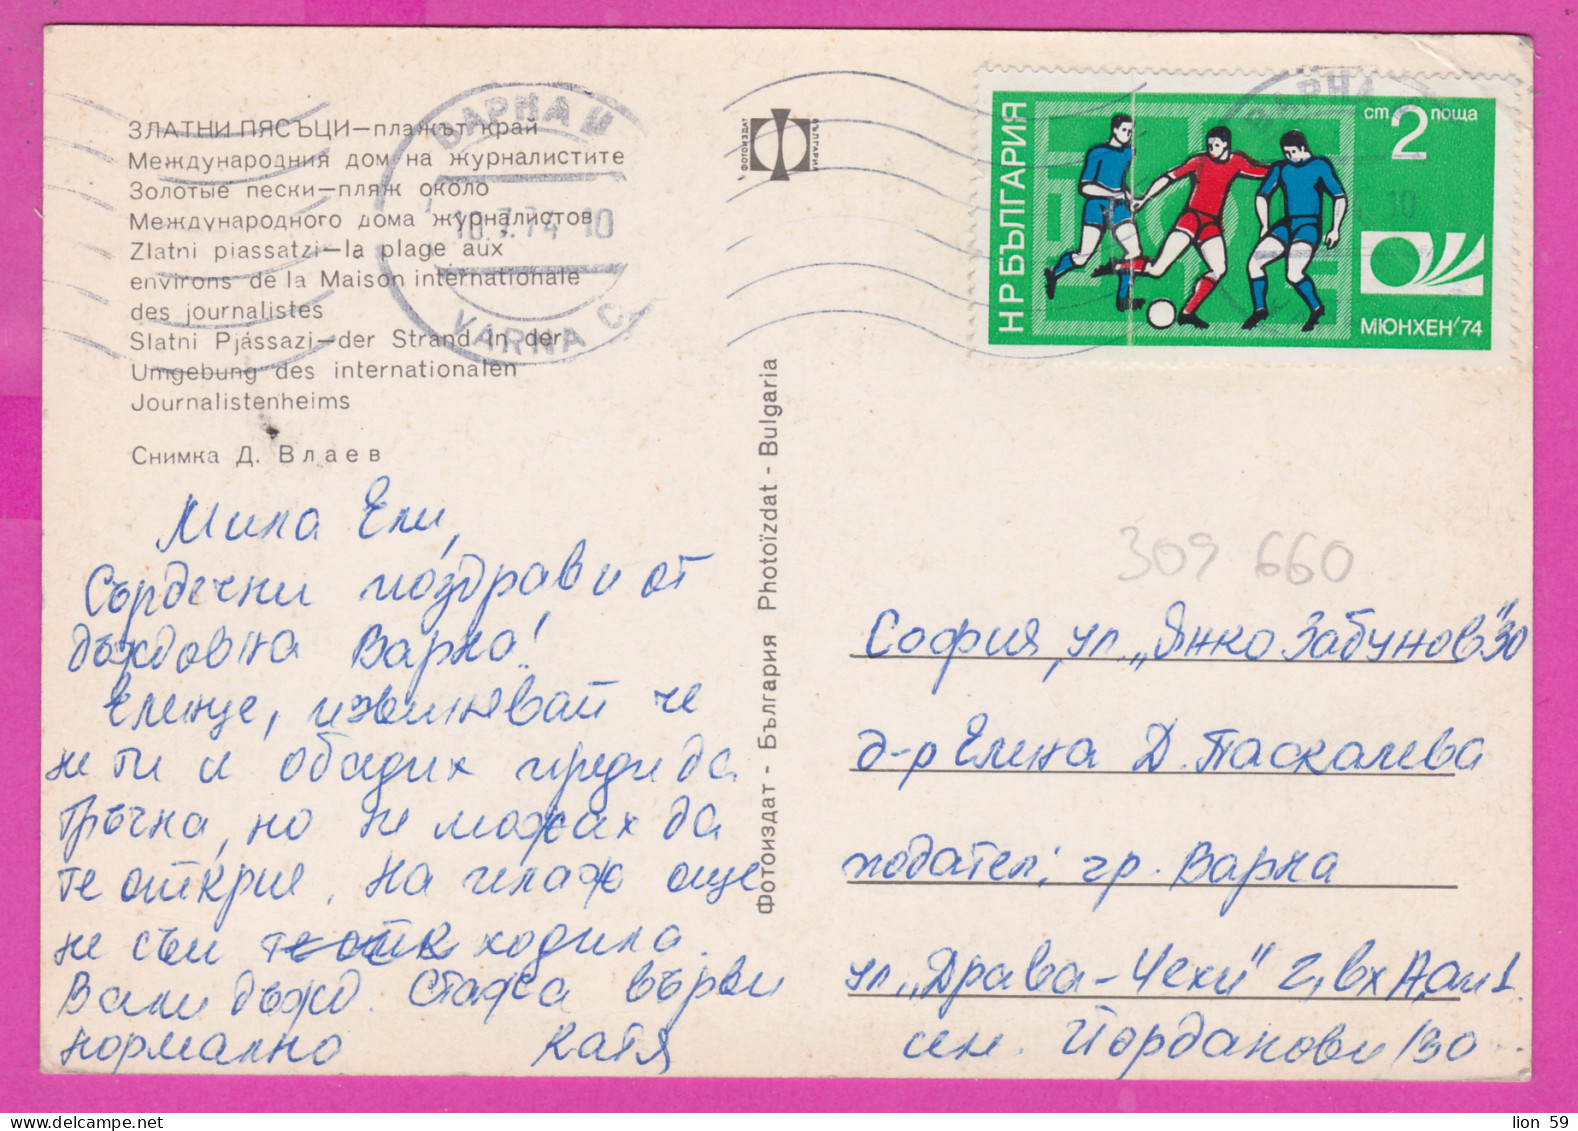 ЗЛАТНИ ПЯСЪЦИ—плажът край
Международния дом на журналистите
Золотые пески—пляж около
Международного дома журналистов
Zlatni piassatzi—la plage aux
environs de la Maison internationale
des journalistes
Slatni Pjássazi—der Strand in der
Umgebung des internationalen
Journalistenheims
Снимка Д. Влаев
Мила Ели,
Сърдечни поздрави от
дъждовна Варна!
Еленце, извинявай че
не ти се обадих преди да
тръгна, но не можах да
те открия. На плаж още
не съм ходила.
Вали дъжд. Стажа върви
нормално Катя
ВАРНА Ц
10.7.74 10
VARNA C.
ФОТОИЗДАТ БЪЛГАРИЯ
Фотоиздат - България Photoïzdat - Bulgaria
НР БЪЛГАРИЯ
ст. 2 поща
МЮНХЕН'74
ВАРНА
4 10
309 660
София, ул. „Янко Забунов" 30
д-р Елена Д. Паскалева
подател: гр. Варна
ул. „Драва-Чехи" 2, вх А, ап 1
сем. Йорданови /30
lion 59